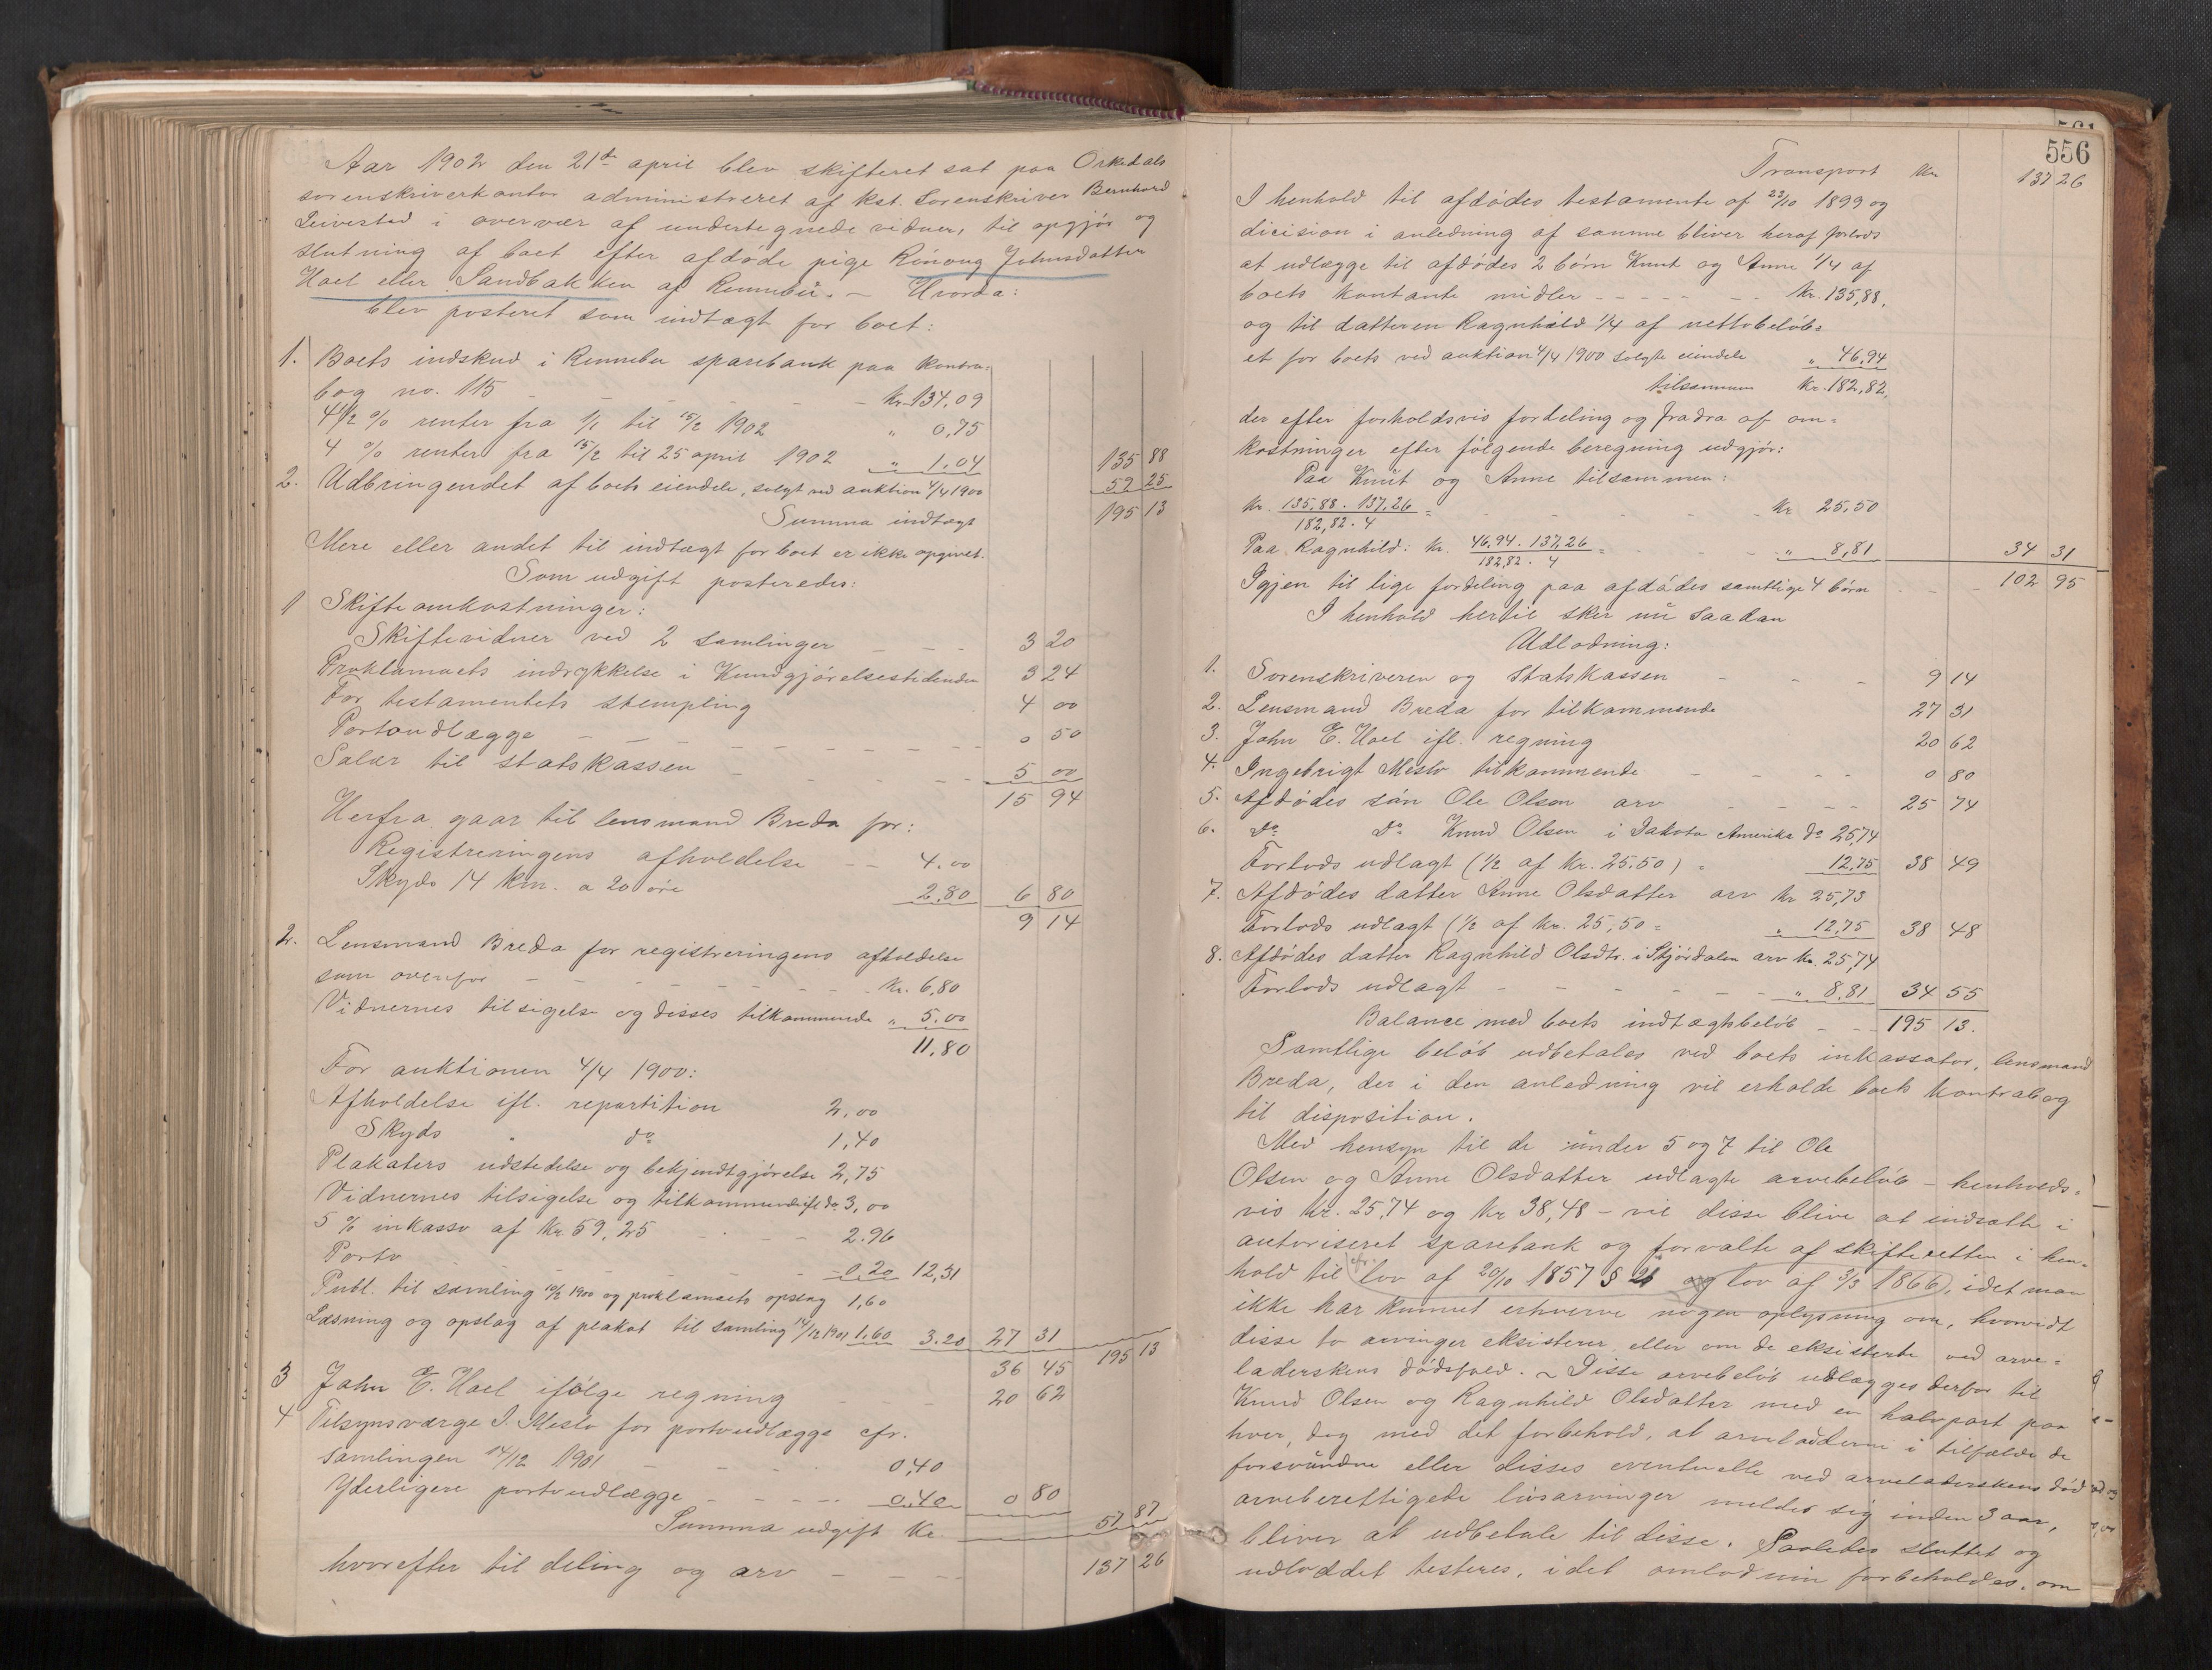 Aar 1902 den 21de april blev skifteret sat paa Orkedals
sorenskriverkontor administreret af kst. Sorenskriver Bernhard
Seiersted i overvær af undertegnede vidner, til opgjør og
slutning af boet efter afdøde pige Rönnoug Johnsdatter
Hoel eller Sandbakken af Rennebu. – Hvorda:
blev posteret som indtægt for boet:
1. Boets indskud i Rennebu sparebank paa kontra-
bog no. 115 - - - - - Kr. 134,09
4 1/2 % renter fra 1/1 til 15/2 1902 " 0,75
4 % renter fra 15/2 til 25 april 1902 " 1.04 135 88
2. Udbringendet af boets eiendele, solgt ved auktion 4/4 1900 59 25
Summa indtægt 195 13
Mere eller andet til indtægt for boet er ikke opgivet.
Som udgift posteredes:
1 Skifteomkostninger:
Skiftevidner ved 2 samlinger - - - 3 20
Proklamaets indrykkelse i Kundgjørelsestidenden 3 24
For testamentets stempling 4 00
Portoudlægge - - - - - - - - - 0 50
Salær til statskassen - - - - - - 5 00
15 94
Herfra gaar til lensmand Breda for:
Registreringens afholdelse - - 4.00
Skyds 14 km. a 20 øre 2.80 6 80
9 14
2. Lensmand Breda for registreringens afholdelse
som ovenfor - - - - - - - - Kr. 6,80
Vidnernes tilsigelse og disses tilkommende " 5.00
11,80
For auktionen 4/4 1900:
Afholdelse ifl. repartition 2,00
Skyds " do 1,40
Plakaters udstedelse og bekjendtgjørelse 2,75
Vidnernes tilsigelse og tilkommende ifl do. 3,00
5 % inkasso af Kr. 59,25 - - - 2.96
Porto - - - - - - - 0,20 12,31
Publ. til samling 10/2 1900 og proklamaets opslag 1,60
Læsning og opslag af plakat til samling 14/12 1901 1.60 3.20 27 31
36 45 195 13
3 John E. Hoel ifølge regning - - - 20 62
4 Tilsynsværge I. Meslo for portoudlægge cfr.
samlingen 14/12 1901 - - - - 0,40
Yderligere portoudlægge - - - - 0.40 0 80
Summa udgift Kr. 57 87
hvorefter til deling og arv - - - - 137 26
556
Transport Kr. 137 26
I henhold til afdødes testamente af 23/10 1899 og
dicision i anledning af samme bliver heraf forlods
at udlægge til afdødes 2 børn Knut og Anne 1/4 af
boets kontante midler - - - - - - Kr. 135,88.
og til datteren Ragnhild 1/4 af nettobeløb-
et for boets ved auktion 4/4 1900 solgte eiendele " 46,94
tilsammen Kr. 182,82,
der efter forholdsvis fordeling og fradra af om-
kostninger efter følgende beregning udgjør:
Paa Knut og Anne tilsammen:
Kr. 135,88 . 137,26 / 182,82 . 4 = - - - - - Kr 25,50
Paa Ragnhild: Kr. 46,94 . 137,26 / 182,82 . 4 = - - " 8,81 34 31
Igjen til lige fordeling paa afdødes samtlige 4 børn - - - 102 95
I henhold hertil sker nu saadan
Udlodning:
1. Sorenskriveren og statskassen - - - 9 14
2. Lensmand Breda for tilkommende 27 31
3. John E. Hoel ifl. regning 20 62
4. Ingebrigt Meslo tilkommende - - - - 0 80
5. Afdødes søn Ole Olsen arv - - - - 25 74
6. do do Knud Olsen i Dakota Amerika do 25,74
Forlods udlagt (1/2 af Kr. 25.50) = 12,75 38 49
7. Afdødes datter Anne Olsdatter arv Kr 25,73
Forlods udlagt (1/2 af Kr. 25,50 = " 12,75 38 48
8. Afdødes datter Ragnhild Olsdtr. i Stjørdalen arv Kr. 25,74
Forlods udlagt - - - - - - " 8.81 34 55
Balance med boets indtægtsbeløb - - 195 13.
Samtlige beløb udbetales ved boets inkassator, lensmand
Breda, der i den anledning vil erholde boets kontrabog
til disposition.
Med hensyn til de under 5 og 7 til Ole
Olsen og Anne Olsdatter udlagte arvebeløb – henholds-
vis Kr. 25,74 og Kr 38,48 – vil disse blive at indsætte i
autoriseret sparebank og forvalte af skifteretten i hen-
hold til cfr. lov af 20/10 1857 § 26 og lov af 3/3 1866, idet man
ikke har kunnet erhverve nogen oplysning om, hvorvidt
disse to arvinger eksisterer, eller om de eksisterte ved arve-
laderskens dødsfald. – Disse arvebeløb udlægges derfor til
Knud Olsen og Ragnhild Olsdatter med en halvpart paa
hver, dog med det forbehold, at arvelodderne i tilfælde de
forsvundne eller disses eventuelle ved arveladerskens død
arveberettigede livsarvinger melder sig inden 3 aar,
bliver at udbetale til disse. Saaledes sluttet og
udloddet testeres, idet omlodnin forbeholdes, om